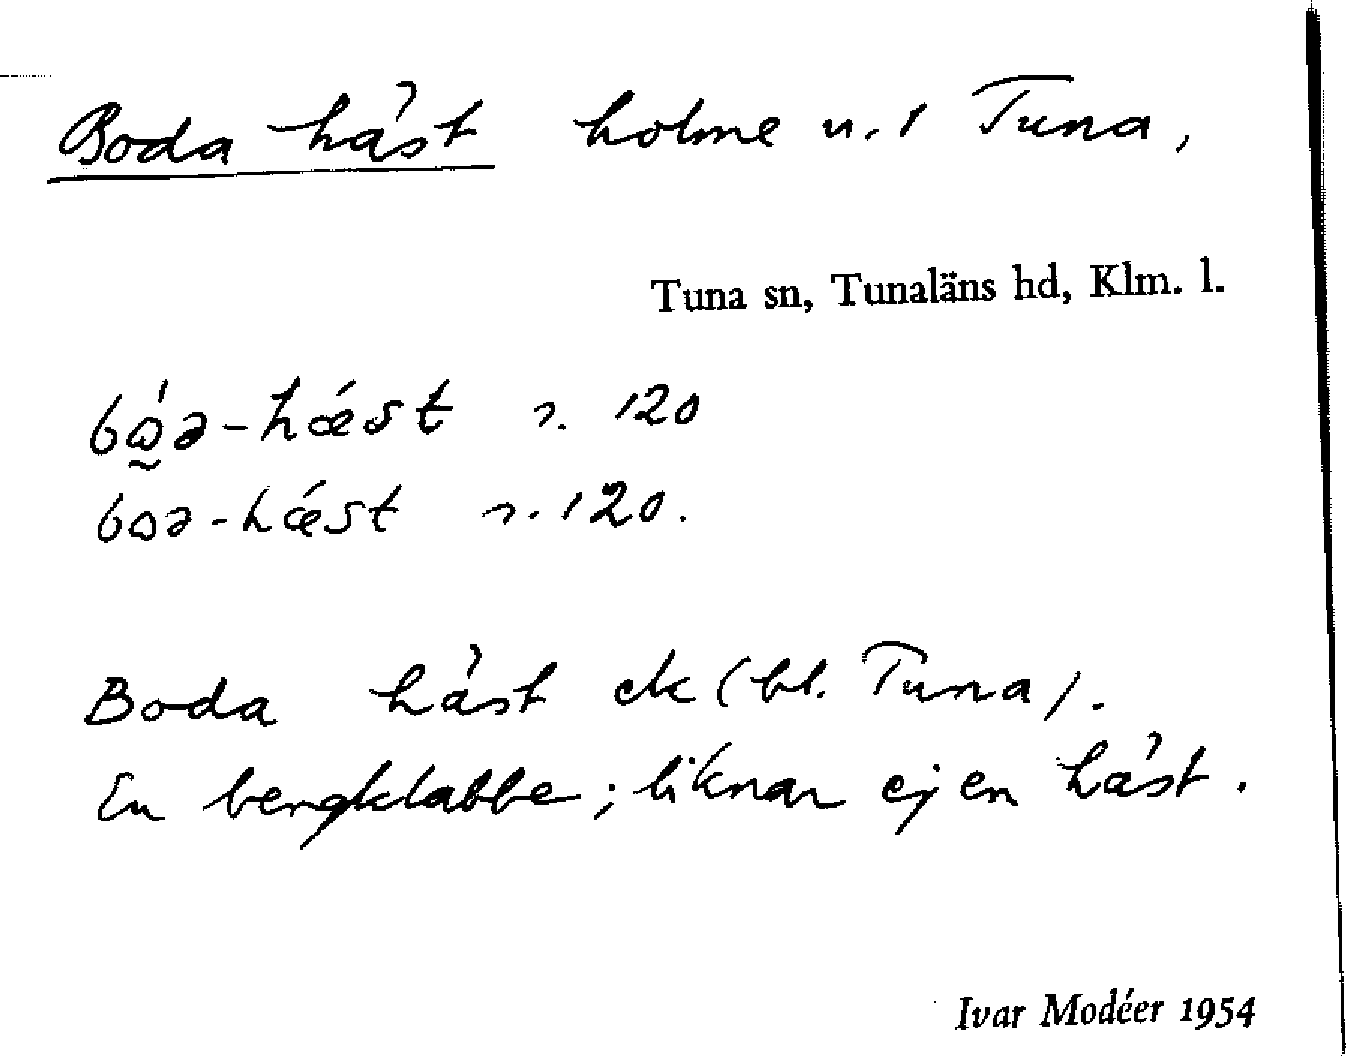 Boda häst holme n. 1 Tuna,
Tuna sn, Tunaläns hd, Klm. l.
bɷ́ə-hǽst r. 120
bɷə-hǽst r. 120.
Boda häst ek (bl. Tuna).
En bergklabbe; liknar ej en häst.
Ivar Modéer 1954